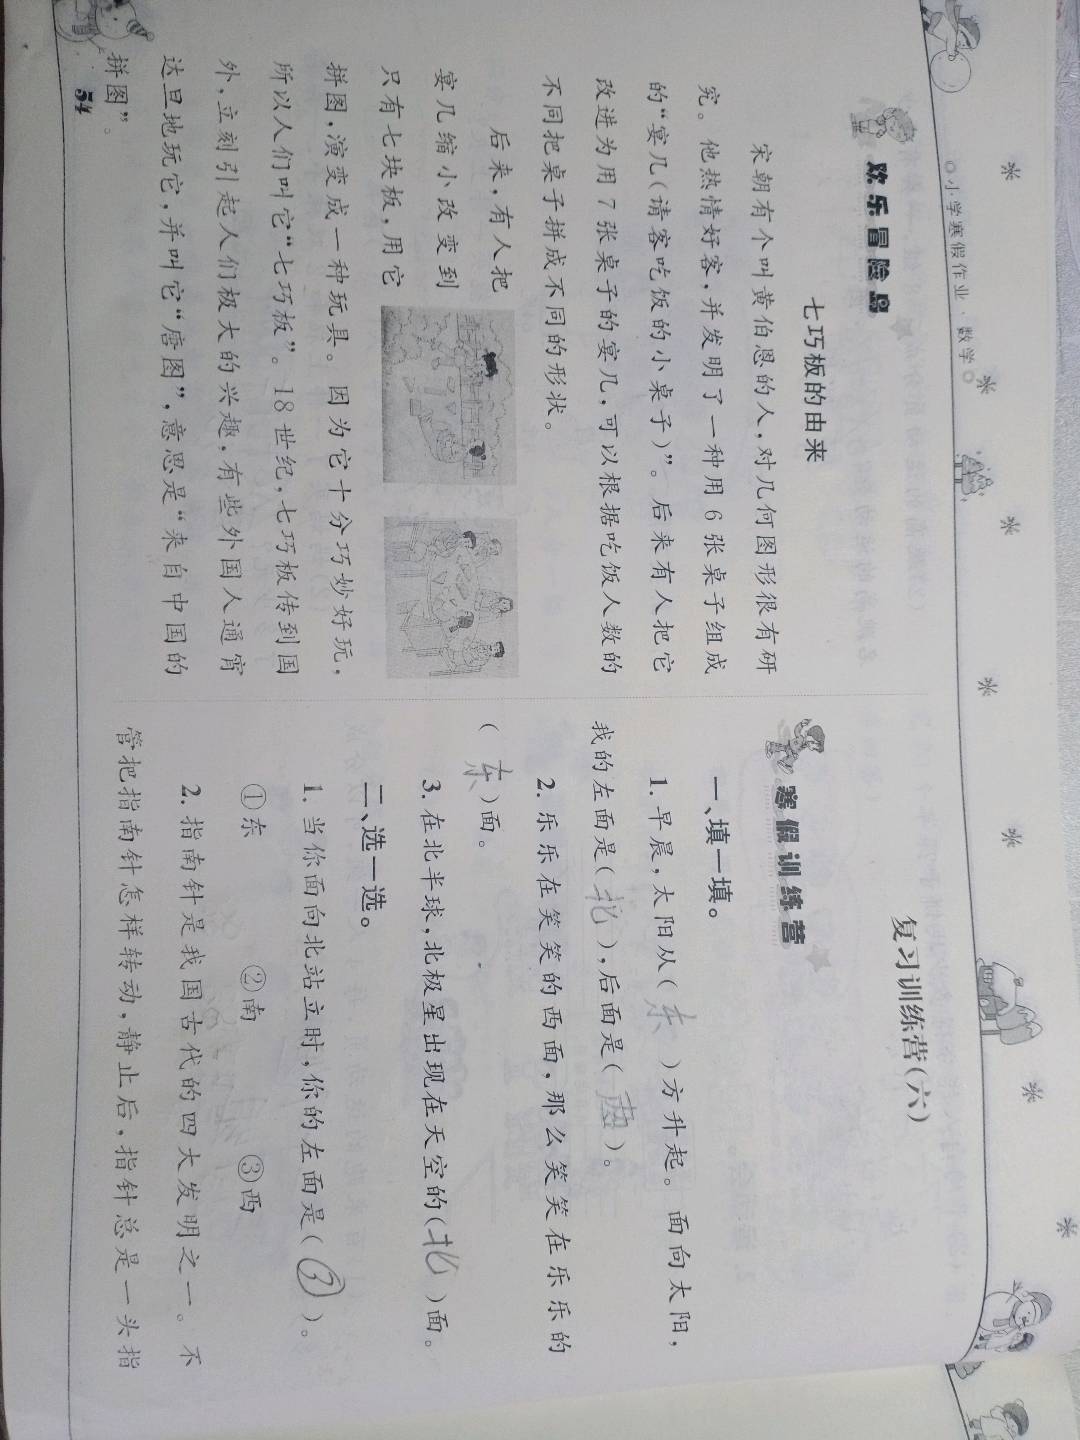 小学寒假作业·数学
欢乐冒险岛
七巧板的由来
宋朝有个叫黄伯恩的人，对几何图形很有研
究。他热情好客，并发明了一种用6张桌子组成
的“宴几(请客吃饭的小桌子)”。后来有人把它
改进为用7张桌子的宴几，可以根据吃饭人数的
不同把桌子拼成不同的形状。
后来，有人把
宴几缩小改变到
只有七块板，用它
拼图，演变成一种玩具。因为它十分巧妙好玩，
所以人们叫它“七巧板”。18世纪，七巧板传到国
外，立刻引起人们极大的兴趣，有些外国人通宵
达旦地玩它，并叫它“唐图”，意思是“来自中国的
拼图”。
54
复习训练营(六)
寒假训练营
一、填一填。
1. 早晨，太阳从(东)方升起。面向太阳，
我的左面是(北)，后面是(西)。
2. 乐乐在笑笑的西面，那么笑笑在乐乐的
(东)面。
3. 在北半球，北极星出现在天空的(北)面。
二、选一选。
1. 当你面向北站立时，你的左面是(③)。
①东 ②南 ③西
2. 指南针是我国古代的四大发明之一。不
管把指南针怎样转动，静止后，指针总是一头指